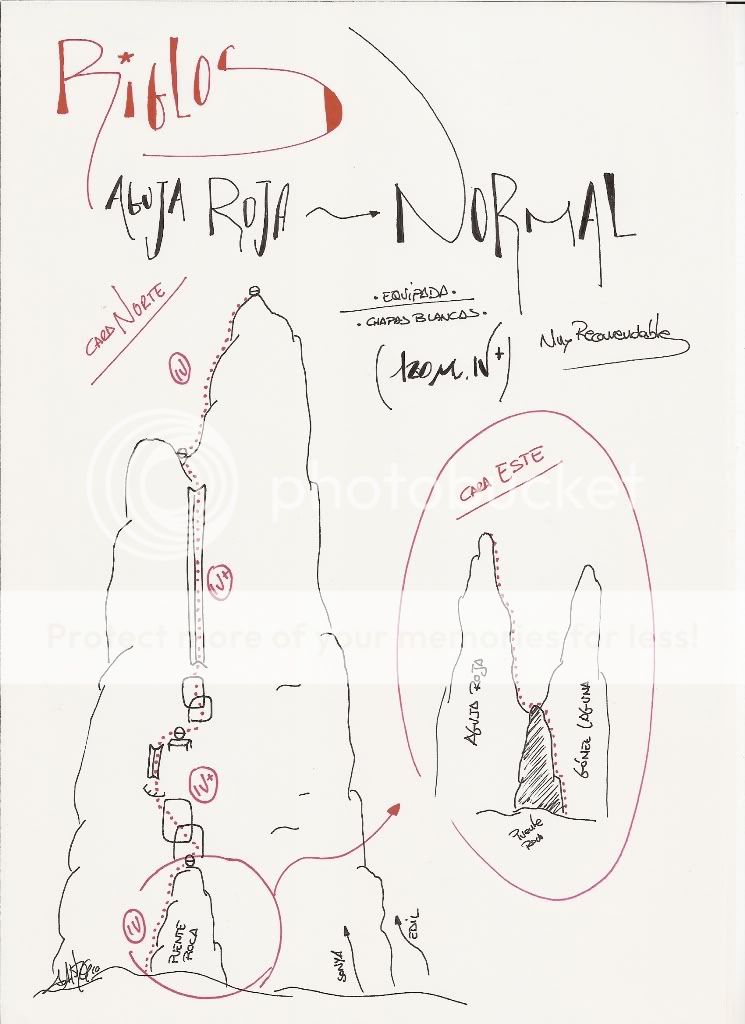 Riglos
AGUJA ROJA → NORMAL
CARA NORTE
• EQUIPADA •
• CHAPAS BLANCAS •
(120 M. IV+)
Muy Recomendable
IV
CARA ESTE
photobucket
IV+
Protect more of your memories for less!
AGUJA ROJA
GÓMEZ LAGUNA
IV+
PUENTE
ROCA
IV
PUENTE
ROCA
SONYA
EDIL